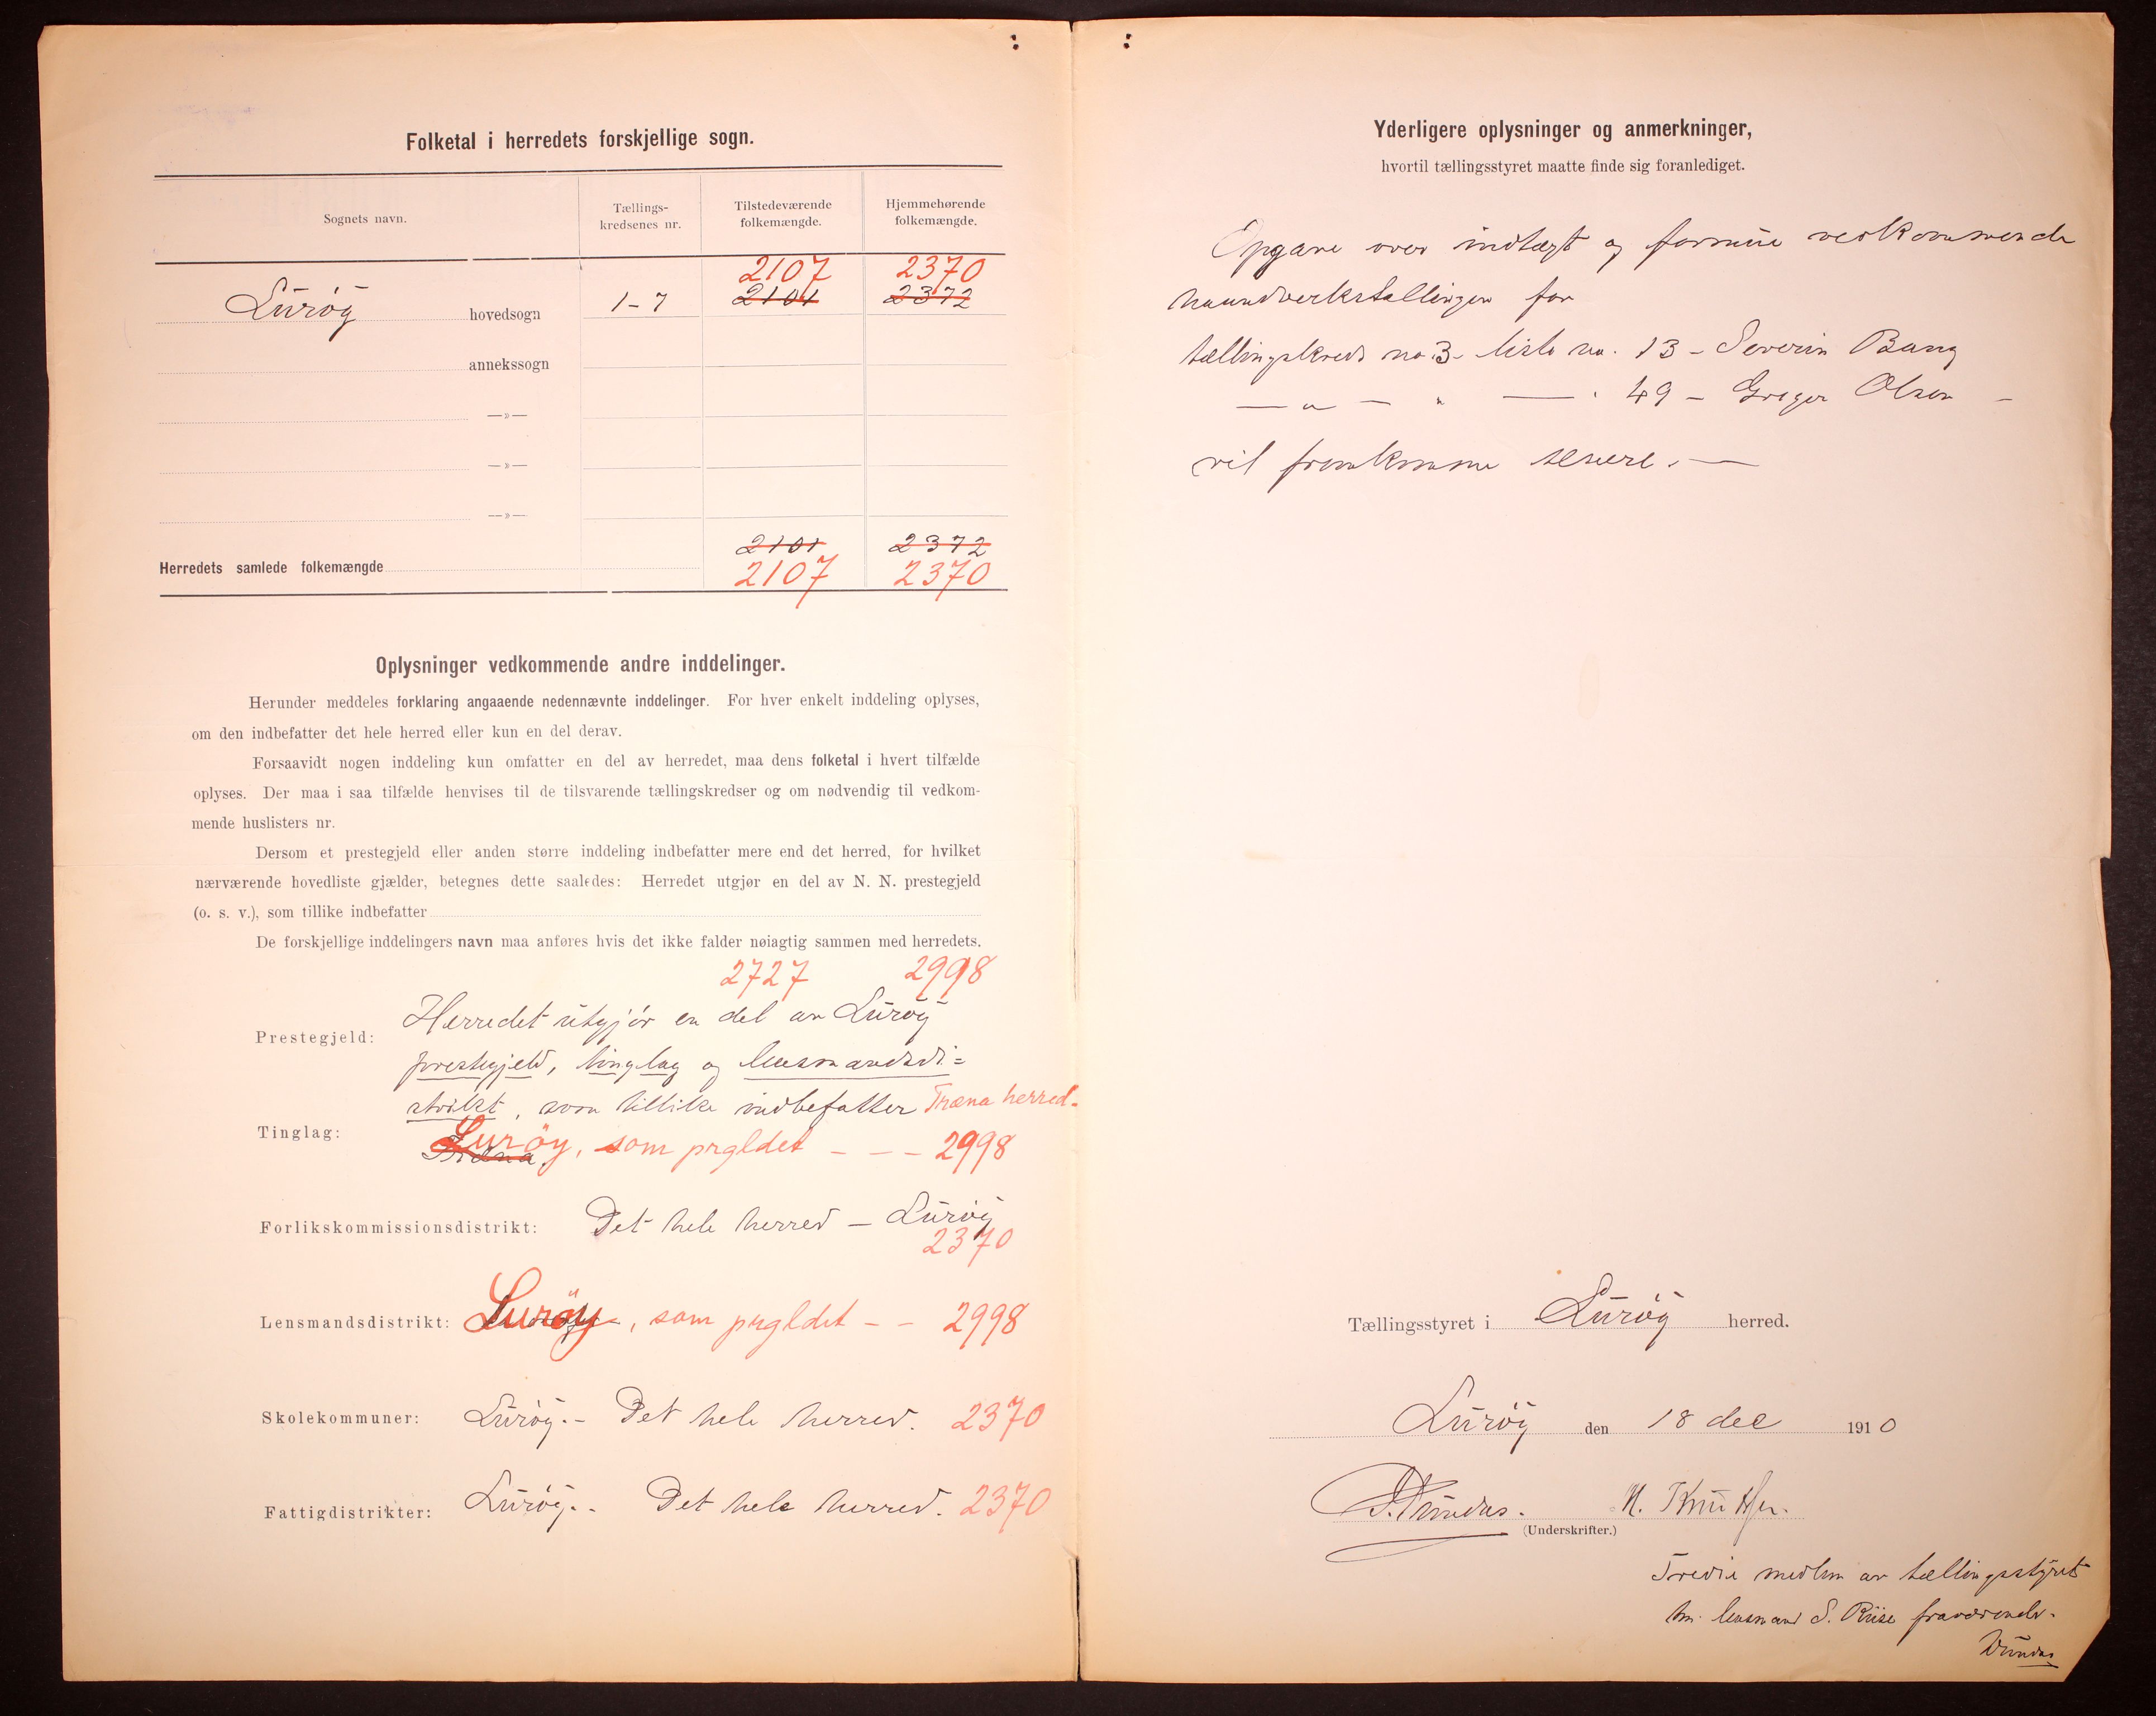 Folketal i herredets forskjellige sogn.
Sognets navn. Tællings-kredsenes nr. Tilstedeværende folkemængde. Hjemmehørende folkemængde.
2107 2370
Lurøy hovedsogn 1-7 2101 2372
annekssogn
—»—
—»—
—»—
2101 2372
Herredets samlede folkemængde 2107 2370
Oplysninger vedkommende andre inddelinger.
Herunder meddeles forklaring angaaende nedennævnte inddelinger. For hver enkelt inddeling oplyses,
om den indbefatter det hele herred eller kun en del derav.
Forsaavidt nogen inddeling kun omfatter en del av herredet, maa dens folketal i hvert tilfælde
oplyses. Der maa i saa tilfælde henvises til de tilsvarende tællingskredser og om nødvendig til vedkom-
mende huslisters nr.
Dersom et prestegjeld eller anden større inddeling indbefatter mere end det herred, for hvilket
nærværende hovedliste gjælder, betegnes dette saaledes: Herredet utgjør en del av N. N. prestegjeld
(o. s. v.), som tillike indbefatter
De forskjellige inddelingers navn maa anføres hvis det ikke falder nøiagtig sammen med herredets.
2727 2998
Prestegjeld: Herredet utgjør en del av Lurøy
prestegjeld, tinglag og lensmandsdi=
strikt, som tillike indbefatter Træna herred.
Tinglag: Træna Lurøy, som prgldet - - - 2998
Forlikskommissionsdistrikt: Det hele herred - Lurøy
2370
Lensmandsdistrikt: Lurøy, som prgldet - - 2998
Skolekommuner: Lurøy.- Det hele herred. 2370
Fattigdistrikter: Lurøy.- Det hele herred. 2370
Yderligere oplysninger og anmerkninger,
hvortil tællingsstyret maatte finde sig foranlediget.
Opgave over indtægt og formue vedkommende
haandverkstællingen for
tællingskreds no 3 - liste no. 13 - Severin Bang
— " — " — " 49 - Greger Olsen -
vil fremkomme senere. —
Tællingsstyret i Lurøy herred.
Lurøy den 18 dec 1910
Dundas. N. Knutsen.
(Underskrifter.)
Tredie medlem av tællingsstyret
hr. lensmand S. Riise fraværende.
Dundas